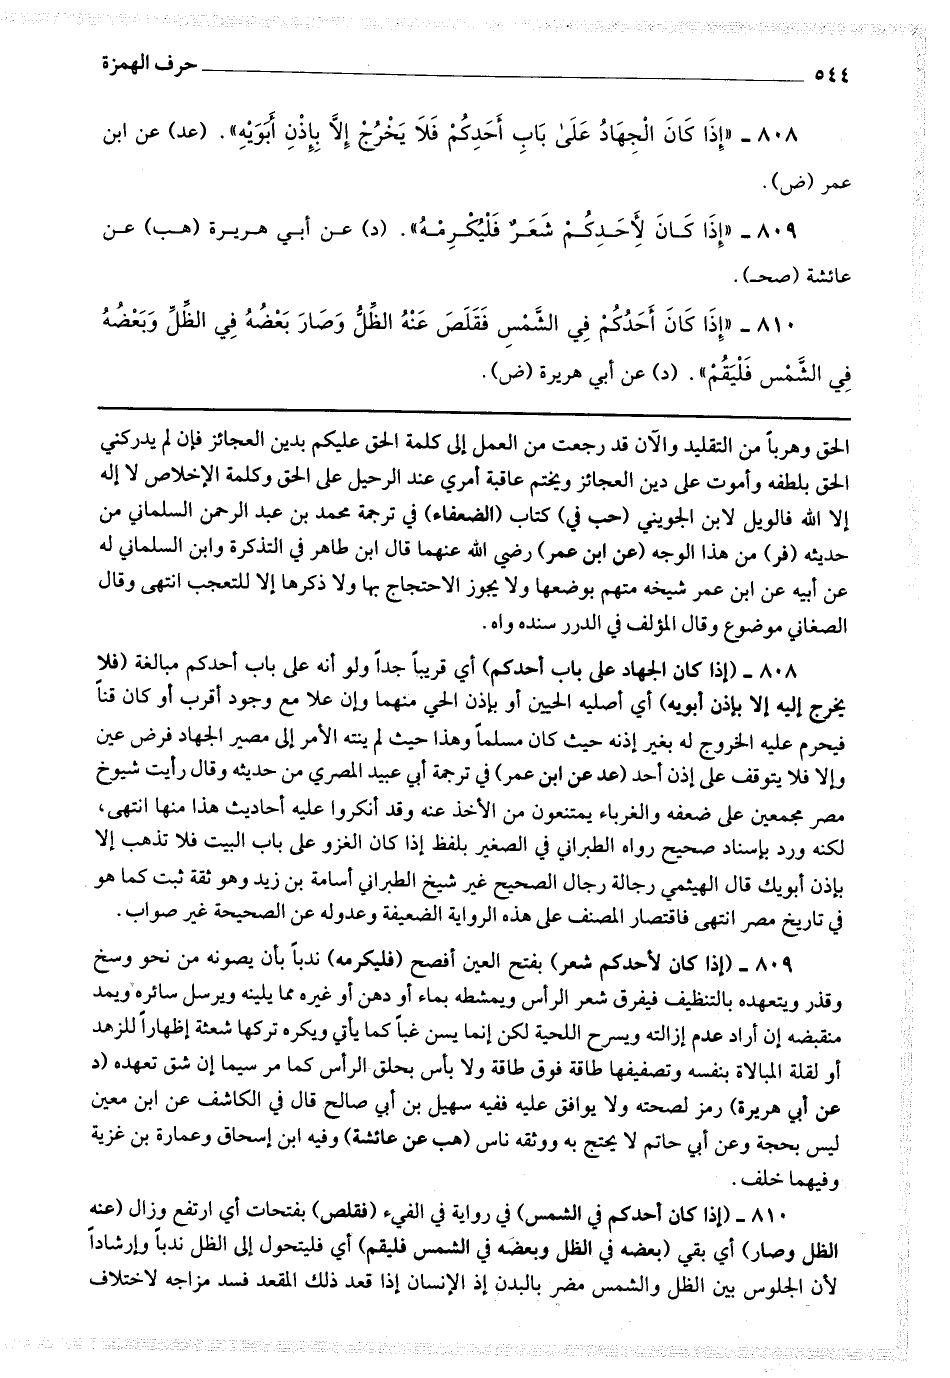 ٥٤٤ حرف الهمزة
٨٠٨ ـ «إِذَا كَانَ الْجِهَادُ عَلَىٰ بَابِ أَحَدِكُمْ فَلَا يَخْرُجْ إِلَّا بِإِذْنِ أَبَوَيْهِ». (عد) عن ابن
عمر (ض).
٨٠٩ ـ «إِذَا كَـانَ لِأَحَـدِكُـمْ شَعَـرٌ فَلْيُكْـرِمْـهُ». (د) عـن أبـي هـريـرة (هـب) عـن
عائشة (صحـ).
٨١٠ ـ «إِذَا كَانَ أَحَدُكُمْ فِي الشَّمْسِ فَقَلَصَ عَنْهُ الظِّلُّ وَصَارَ بَعْضُهُ فِي الظِّلِّ وَبَعْضُهُ
فِي الشَّمْسِ فَلْيَقُمْ». (د) عن أبي هريرة (ض).
الحق وهرباً من التقليد والآن قد رجعت من العمل إلى كلمة الحق عليكم بدين العجائز فإن لم يدركني
الحق بلطفه وأموت على دين العجائز ويختم عاقبة أمري عند الرحيل على الحق وكلمة الإخلاص لا إله
إلا الله فالويل لابن الجويني (حب في) كتاب (الضعفاء) في ترجمة محمد بن عبد الرحمن السلماني من
حديثه (فر) من هذا الوجه (عن ابن عمر) رضي الله عنهما قال ابن طاهر في التذكرة وابن السلماني له
عن أبيه عن ابن عمر شيخه متهم بوضعها ولا يجوز الاحتجاج بها ولا ذكرها إلا للتعجب انتهى وقال
الصغاني موضوع وقال المؤلف في الدرر سنده واه.
٨٠٨ ـ (إذا كان الجهاد على باب أحدكم) أي قريباً جداً ولو أنه على باب أحدكم مبالغة (فلا
يخرج إليه إلا بإذن أبويه) أي أصليه الحيين أو بإذن الحي منهما وإن علا مع وجود أقرب أو كان قناً
فيحرم عليه الخروج له بغير إذنه حيث كان مسلماً وهذا حيث لم ينته الأمر إلى مصير الجهاد فرض عين
وإلا فلا يتوقف على إذن أحد (عد عن ابن عمر) في ترجمة أبي عبيد المصري من حديثه وقال رأيت شيوخ
مصر مجمعين على ضعفه والغرباء يمتنعون من الأخذ عنه وقد أنكروا عليه أحاديث هذا منها انتهى،
لكنه ورد بإسناد صحيح رواه الطبراني في الصغير بلفظ إذا كان الغزو على باب البيت فلا تذهب إلا
بإذن أبويك قال الهيثمي رجالة رجال الصحيح غير شيخ الطبراني أسامة بن زيد وهو ثقة ثبت كما هو
في تاريخ مصر انتهى فاقتصار المصنف على هذه الرواية الضعيفة وعدوله عن الصحيحة غير صواب.
٨٠٩ ـ (إذا كان لأحدكم شعر) بفتح العين أفصح (فليكرمه) ندباً بأن يصونه من نحو وسخ
وقذر ويتعهده بالتنظيف فيفرق شعر الرأس ويمشطه بماء أو دهن أو غيره مما يلينه ويرسل سائره ويمد
منقبضه إن أراد عدم إزالته ويسرح اللحية لكن إنما يسن غباً كما يأتي ويكره تركها شعثة إظهاراً للزهد
أو لقلة المبالاة بنفسه وتصفيفها طاقة فوق طاقة ولا بأس بحلق الرأس كما مر سيما إن شق تعهده (د
عن أبي هريرة) رمز لصحته ولا يوافق عليه ففيه سهيل بن أبي صالح قال في الكاشف عن ابن معين
ليس بحجة وعن أبي حاتم لا يحتج به ووثقه ناس (هب عن عائشة) وفيه ابن إسحاق وعمارة بن غزية
وفيهما خلف.
٨١٠ ـ (إذا كان أحدكم في الشمس) في رواية في الفيء (فقلص) بفتحات أي ارتفع وزال (عنه
الظل وصار) أي بقي (بعضه في الظل وبعضه في الشمس فليقم) أي فليتحول إلى الظل ندباً وإرشاداً
لأن الجلوس بين الظل والشمس مضر بالبدن إذ الإنسان إذا قعد ذلك المقعد فسد مزاجه لاختلاف